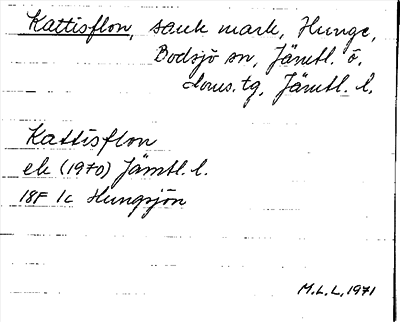 Kattisflon, sank mark, Hunge,
Bodsjö sn, Jämtl. ö.
doms. tg, Jämtl. l.
Kattisflon
ek (1970) Jämtl. l.
18F 1c Hungsjön
M.L.L. 1971